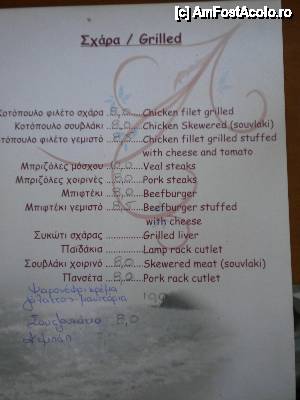 (c) AmFostAcolo.ro
Σχάρα / Grilled
Κοτόπουλο φιλέτο σχάρα 8,0 Chicken filet grilled
Κοτόπουλο σουβλάκι 8,0 Chicken Skewered (souvlaki)
φιλέτο γεμιστό Chicken fillet grilled stuffed
with cheese and tomato
Μπριζόλες μόσχου Veal steaks
Μπριζόλες χοιρινές 8,0 Pork steaks
Μπιφτέκι 8,0 Beefburger
Μπιφτέκι γεμιστό 8,5 Beefburger stuffed
with cheese
Συκώτι σχάρας Grilled liver
Παϊδάκια Lamp rack cutlet
Σουβλάκι χοιρινό 8,0 Skewered meat (souvlaki)
Πανσέτα 8,0 Pork rack cutlet
8,0